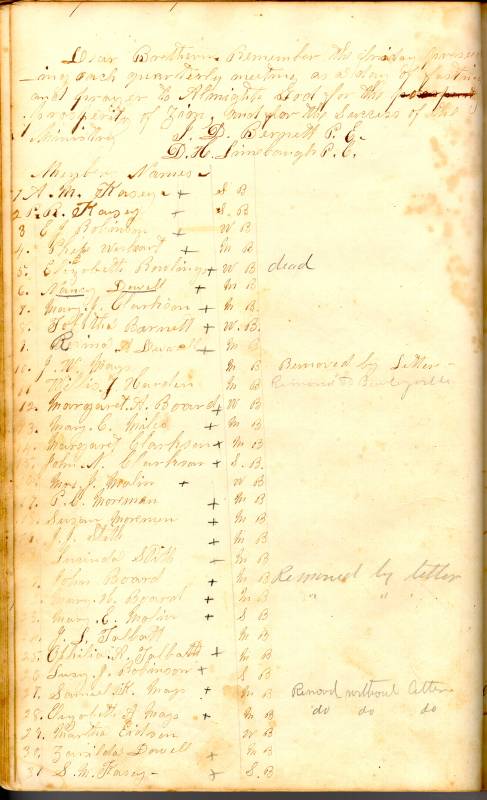 Dear Brethern Remember the friday preceed
-ing each quarterly meeting as a day of fasting
and prayer to Almighty God for the
prosperity of Zion, and for the success of the
Ministry
J. D. Bennett P. E.
D. H. Linebaugh P. C.
Members Names
1 A. M. Kasey + S B
2 R. R. Kasey + S. B
3 E J Robinson + W B
4. + M B
5. Elizabeth Rawlings + W B dead
6. Nancy Dowell + M B
7. Mary J. Clarkson + M B
8. Tabitha Barnett + W. B.
9. Dowell + M B
10. J. W. Mays M B Removed by Letter -
11 Willis J Harden M B Removed to
12. Margaret A. Board + W B
13. Mary C. Miles + M B
14. Margaret Clarkson + M B
15. John N. Clarkson + S. B.
16. J. Modlin + W B
17. P. C. Moreman + M B
18. Suzan Moremen + M B
19. J. J. Stith + M B
Lucinda Stith - M B
John Board + M B Removed by letter
Mary W. Board + M B " " "
Mary E. Modlin + S B
J. S. Talbott M B
25. R. Talbott + M B
26 Lucy J. Robinson + S B
27. Samuel H. Mays + M B Removd without letter
28. Elizabeth A Mays + M B do do do
29. Martha W B
30. Zarilda Dowell + M B
31 S. M. Kasey - + S B